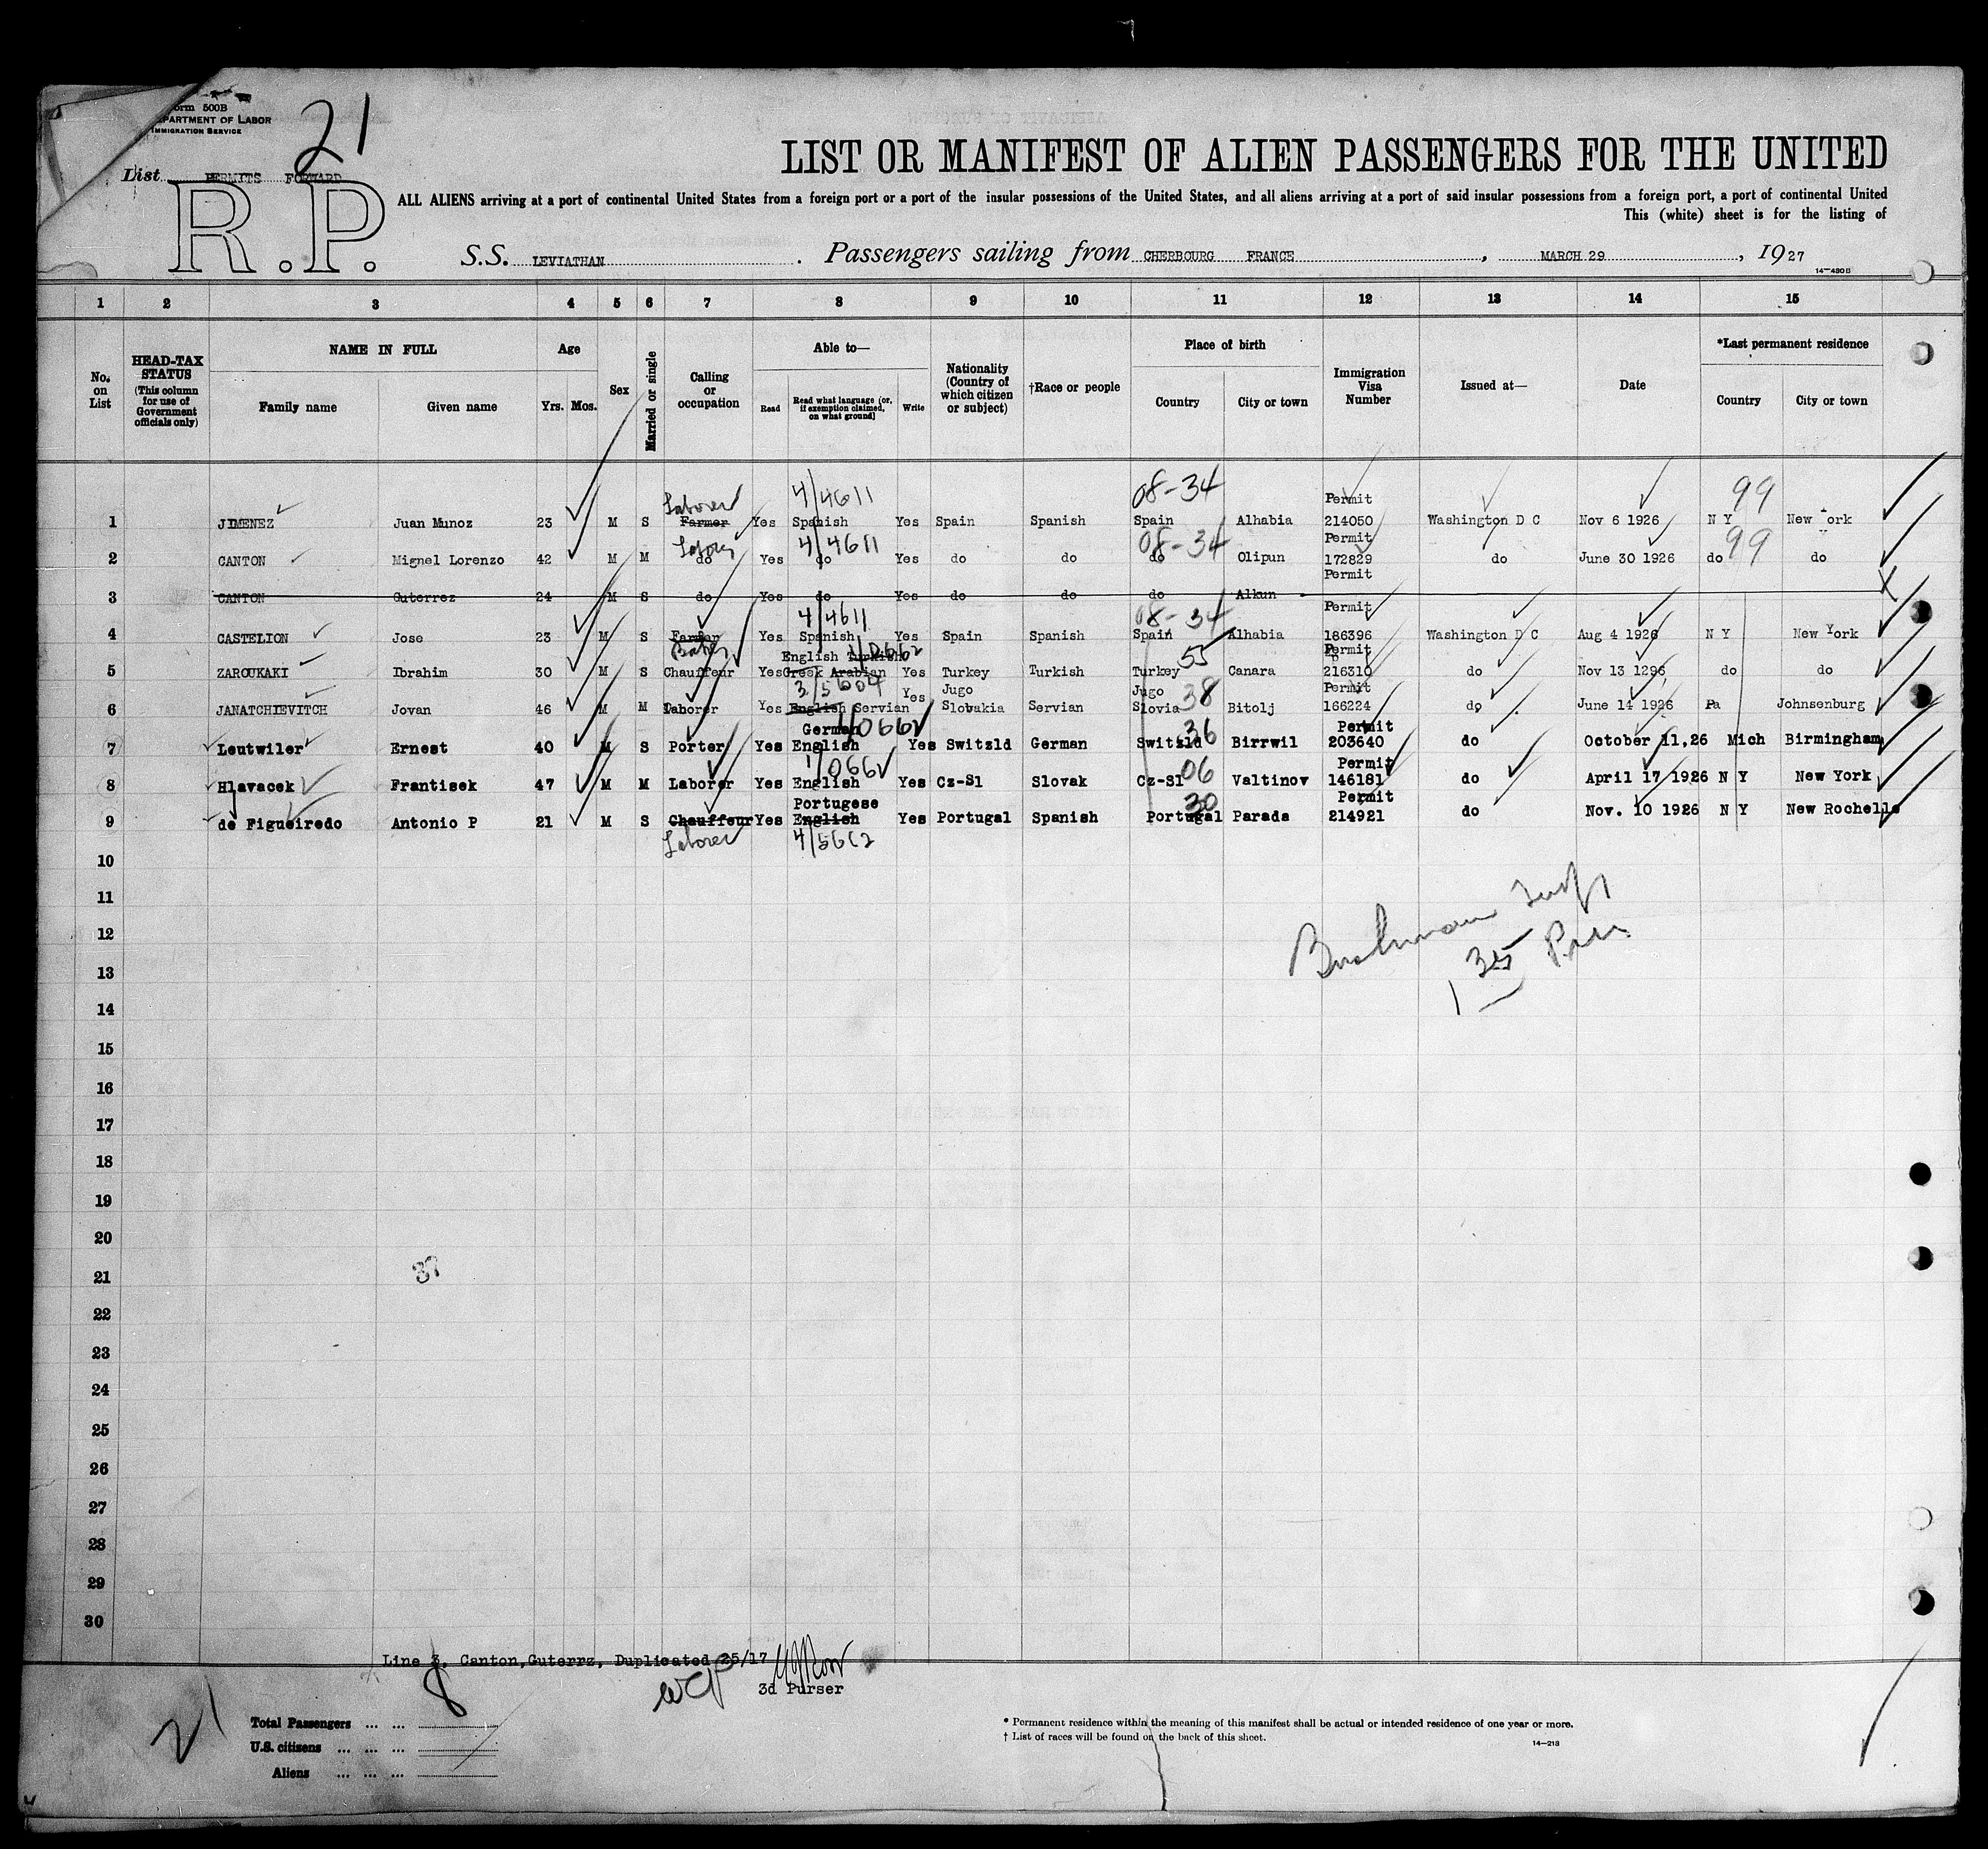 21
Form 500B
DEPARTMENT OF LABOR
IMMIGRATION SERVICE
List PERMITS FORWARD
R.P.
LIST OR MANIFEST OF ALIEN PASSENGERS FOR THE UNITED
ALL ALIENS arriving at a port of continental United States from a foreign port or a port of the insular possessions of the United States, and all aliens arriving at a port of said insular possessions from a foreign port, a port of continental United
This (white) sheet is for the listing of
S.S. LEVIATHAN. Passengers sailing from CHERBOURG FRANCE, MARCH 29, 1927
14-430B
1 2 3 4 5 6 7 8 9 10 11 12 13 14 15
No. on List
HEAD-TAX STATUS (This column for use of Government officials only)
NAME IN FULL Family name Given name
Age Yrs. Mos.
Sex
Married or single
Calling or occupation
Able to— Read Read what language (or, if exemption claimed, on what ground) Write
Nationality (Country of which citizen or subject)
†Race or people
Place of birth Country City or town
Immigration Visa Number
Issued at—
Date
*Last permanent residence Country City or town
Laborer 4/4611 08-34 Permit 99
1 JIMENEZ Juan Munoz 23 M S Farmer Yes Spanish Yes Spain Spanish Spain Alhabia 214050 Washington D C Nov 6 1926 N Y New York
4/4611 08-34 Permit 99
2 CANTON Mignel Lorenzo 42 M M do Yes do Yes do do do Olipun 172829 do June 30 1926 do do
Permit
3 CANTON Guterrez 24 M S do Yes do Yes do do do Alkun X
4/4611 08-34 Permit
4 CASTELION Jose 23 M S Farmer Yes Spanish Yes Spain Spanish Spain Alhabia 186396 Washington D C Aug 4 1926 N Y New York
Baker English Turkish 55 Permit
5 ZAROUKAKI Ibrahim 30 M S Chauffeur Yes Greek Arabian Yes Turkey Turkish Turkey Canara 216310 do Nov 13 1296 do do
3/5604 Jugo Jugo 38 Permit
6 JANATCHIEVITCH Jovan 46 M M Laborer Yes English Servian Yes Slovakia Servian Slovia Bitolj 166224 do June 14 1926 Pa Johnsenburg
German 1/066 36 Permit
7 Leutwiler Ernest 40 M S Porter Yes English Yes Switzld German Switzld Birrwil 203640 do October 11,26 Mich Birmingham
1/066 06 Permit
8 Hlavacek Frantisek 47 M M Laborer Yes English Yes Cz-Sl Slovak Cz-Sl Valtinov 146181 do April 17 1926 N Y New York
Portugese 30 Permit
9 de Figueiredo Antonio P 21 M S Chauffeur Yes English Yes Portugal Spanish Portugal Parada 214921 do Nov. 10 1926 N Y New Rochelle
Laborer 4/5612
10
11
12
13
14
15
16
17
18
19
20
21
37
22
23
24
25
26
27
28
29
30
Line 3, Canton, Guterrz, Duplicated 25/17
8
3d Purser
21
Total Passengers ... ...
U.S. citizens ... ... ...
Aliens ... ... ...
* Permanent residence within the meaning of this manifest shall be actual or intended residence of one year or more.
† List of races will be found on the back of this sheet.
14-213